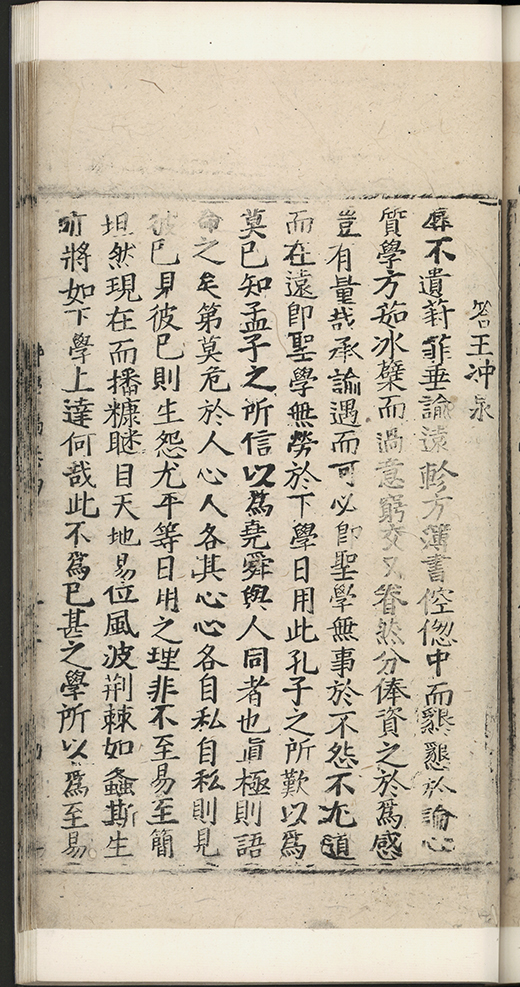 答王沖泉
辱不遺葑菲垂諭遠軫方簿書倥傯中而懇懇於論心
質學方茹冰櫱而過意窮交又眷然分俸資之於爲感
豈有量哉承諭遇而可必即聖學無事於不怨不尤道
而在遠即聖學無勞於下學日用此孔子之所歎以爲
莫已知孟子之所信以爲堯舜與人同者也眞極則語
命之矣第莫危於人心人各其心心各自私自私則見
彼已見彼已則生怨尤平等日用之理非不至易至簡
坦然現在而播糠瞇目天地易位風波荆棘如螽斯生
將如下學上達何哉此不爲已甚之學所以爲至易